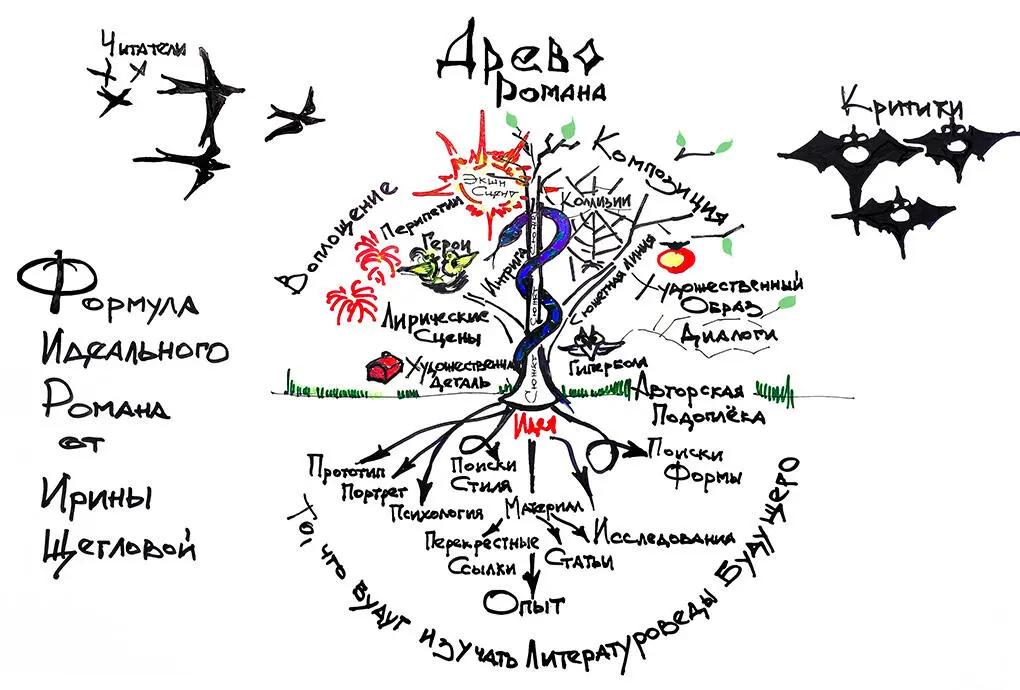 Древо
Романа
Читатели
Критики
Воплощение
Композиция
Экшн
Сцены
Перипетии
Коллизии
Герои
Интрига
Сюжет
Сюжет
Сюжет
Сюжетная линия
Художественный
Образ
Диалоги
Лирические
Сцены
Художественная
Деталь
Гипербола
Авторская
Подоплёка
Идея
Формула
Идеального
Романа
от
Ирины
Щегловой
Прототип
Портрет
Психология
Поиски
Стиля
Поиски
Формы
Материал
Перекрестные
Ссылки
Статьи
Исследования
Опыт
То, что будут изучать Литературоведы Будущего